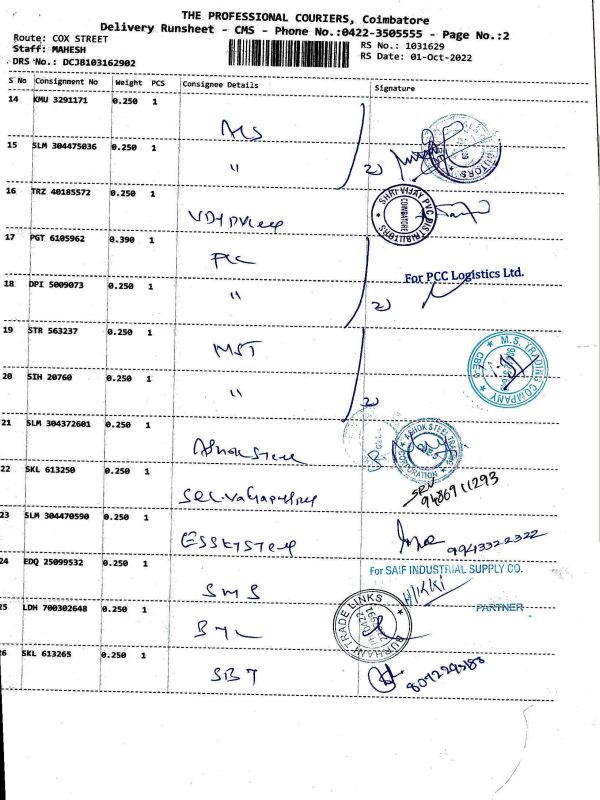 THE PROFESSIONAL COURIERS, Coimbatore
Delivery Runsheet - CMS - Phone No.:0422-3505555 - Page No.:2
Route: COX STREET
Staff: MAHESH
DRS No.: DCJB103162902
RS No.: 1031629
RS Date: 01-Oct-2022
S No Consignment No Weight PCS Consignee Details Signature
14 KMU 3291171 0.250 1
AMS
15 SLM 304475036 0.250 1
"
2)
16 TRZ 40185572 0.250 1
SHRI VIJAY PVC DISTRIBUTORS COIMBATORE
17 PGT 6105962 0.390 1
PCC
For PCC Logistics Ltd.
18 DPI 5009073 0.250 1
"
2)
19 STR 563237 0.250 1
MST
M.S. TRADING COMPANY CBE-1
20 SIH 20760 0.250 1
"
2)
21 SLM 304372601 0.250 1
Ashok Steel
ASHOK STEEL TRADING CORPORATION
22 SKL 613250 0.250 1
SRV
9486911293
23 SLM 304470590 0.250 1
9943322322
24 EDQ 25099532 0.250 1
SMS
For SAIF INDUSTRIAL SUPPLY CO.
HIKKI
PARTNER
25 LDH 700302648 0.250 1
BTL
BURHANI TRADE LINKS
26 SKL 613265 0.250 1
SBT